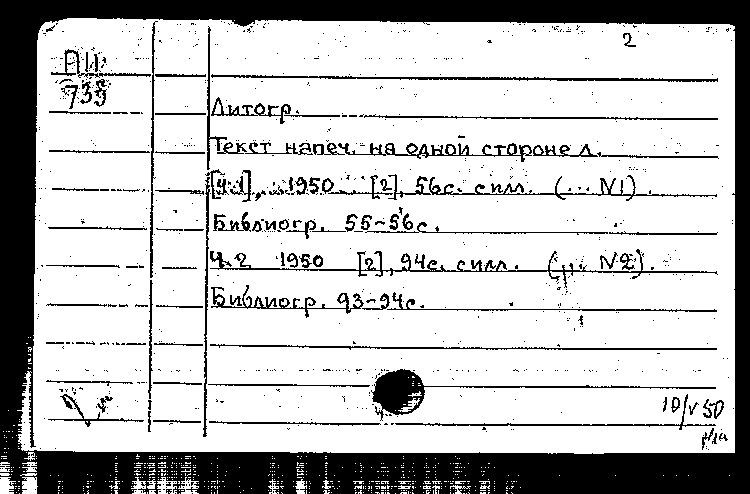 2
АШ
739
Литогр.
Текст напеч. на одной стороне л.
[ч.1], 1950 [2], 56с. с илл. (... N1).
Библиогр. 55-56с.
Ч.2 1950 [2], 94с. с илл. ( N2).
Библиогр. 93-94с.
10/V 50